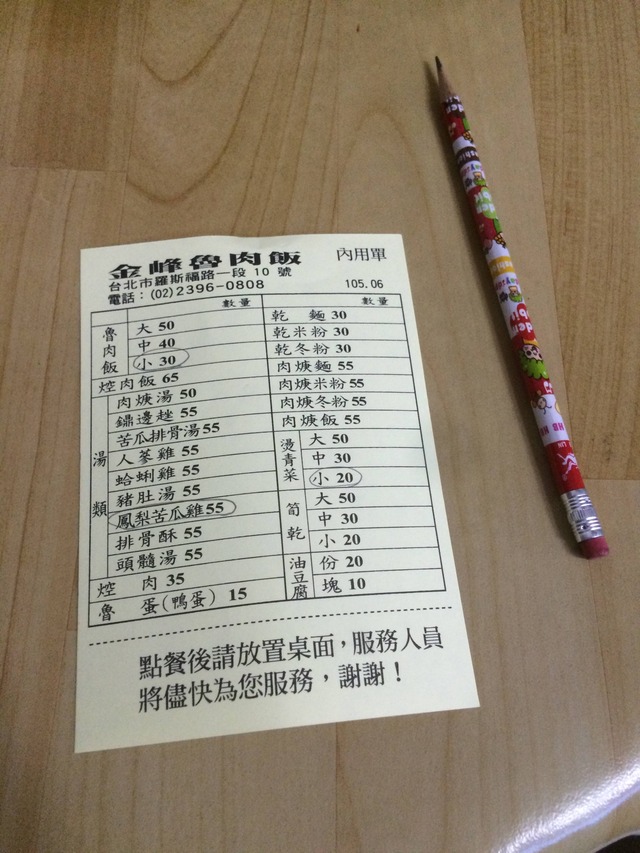 金峰魯肉飯 內用單
台北市羅斯福路一段 10 號
電話：(02)2396-0808 105.06
數量
魯肉飯
大 50
中 40
小 30
焢肉飯 65
湯類
肉焿湯 50
鏽邊趖 55
苦瓜排骨湯 55
人蔘雞 55
蛤蜊雞 55
豬肚湯 55
鳳梨苦瓜雞 55
排骨酥 55
頭髓湯 55
焢肉 35
魯蛋(鴨蛋) 15
數量
乾麵 30
乾米粉 30
乾冬粉 30
肉焿麵 55
肉焿米粉 55
肉焿冬粉 55
肉焿飯 55
燙青菜
大 50
中 30
小 20
筍乾
大 50
中 30
小 20
油豆腐
份 20
塊 10
點餐後請放置桌面，服務人員
將儘快為您服務，謝謝！